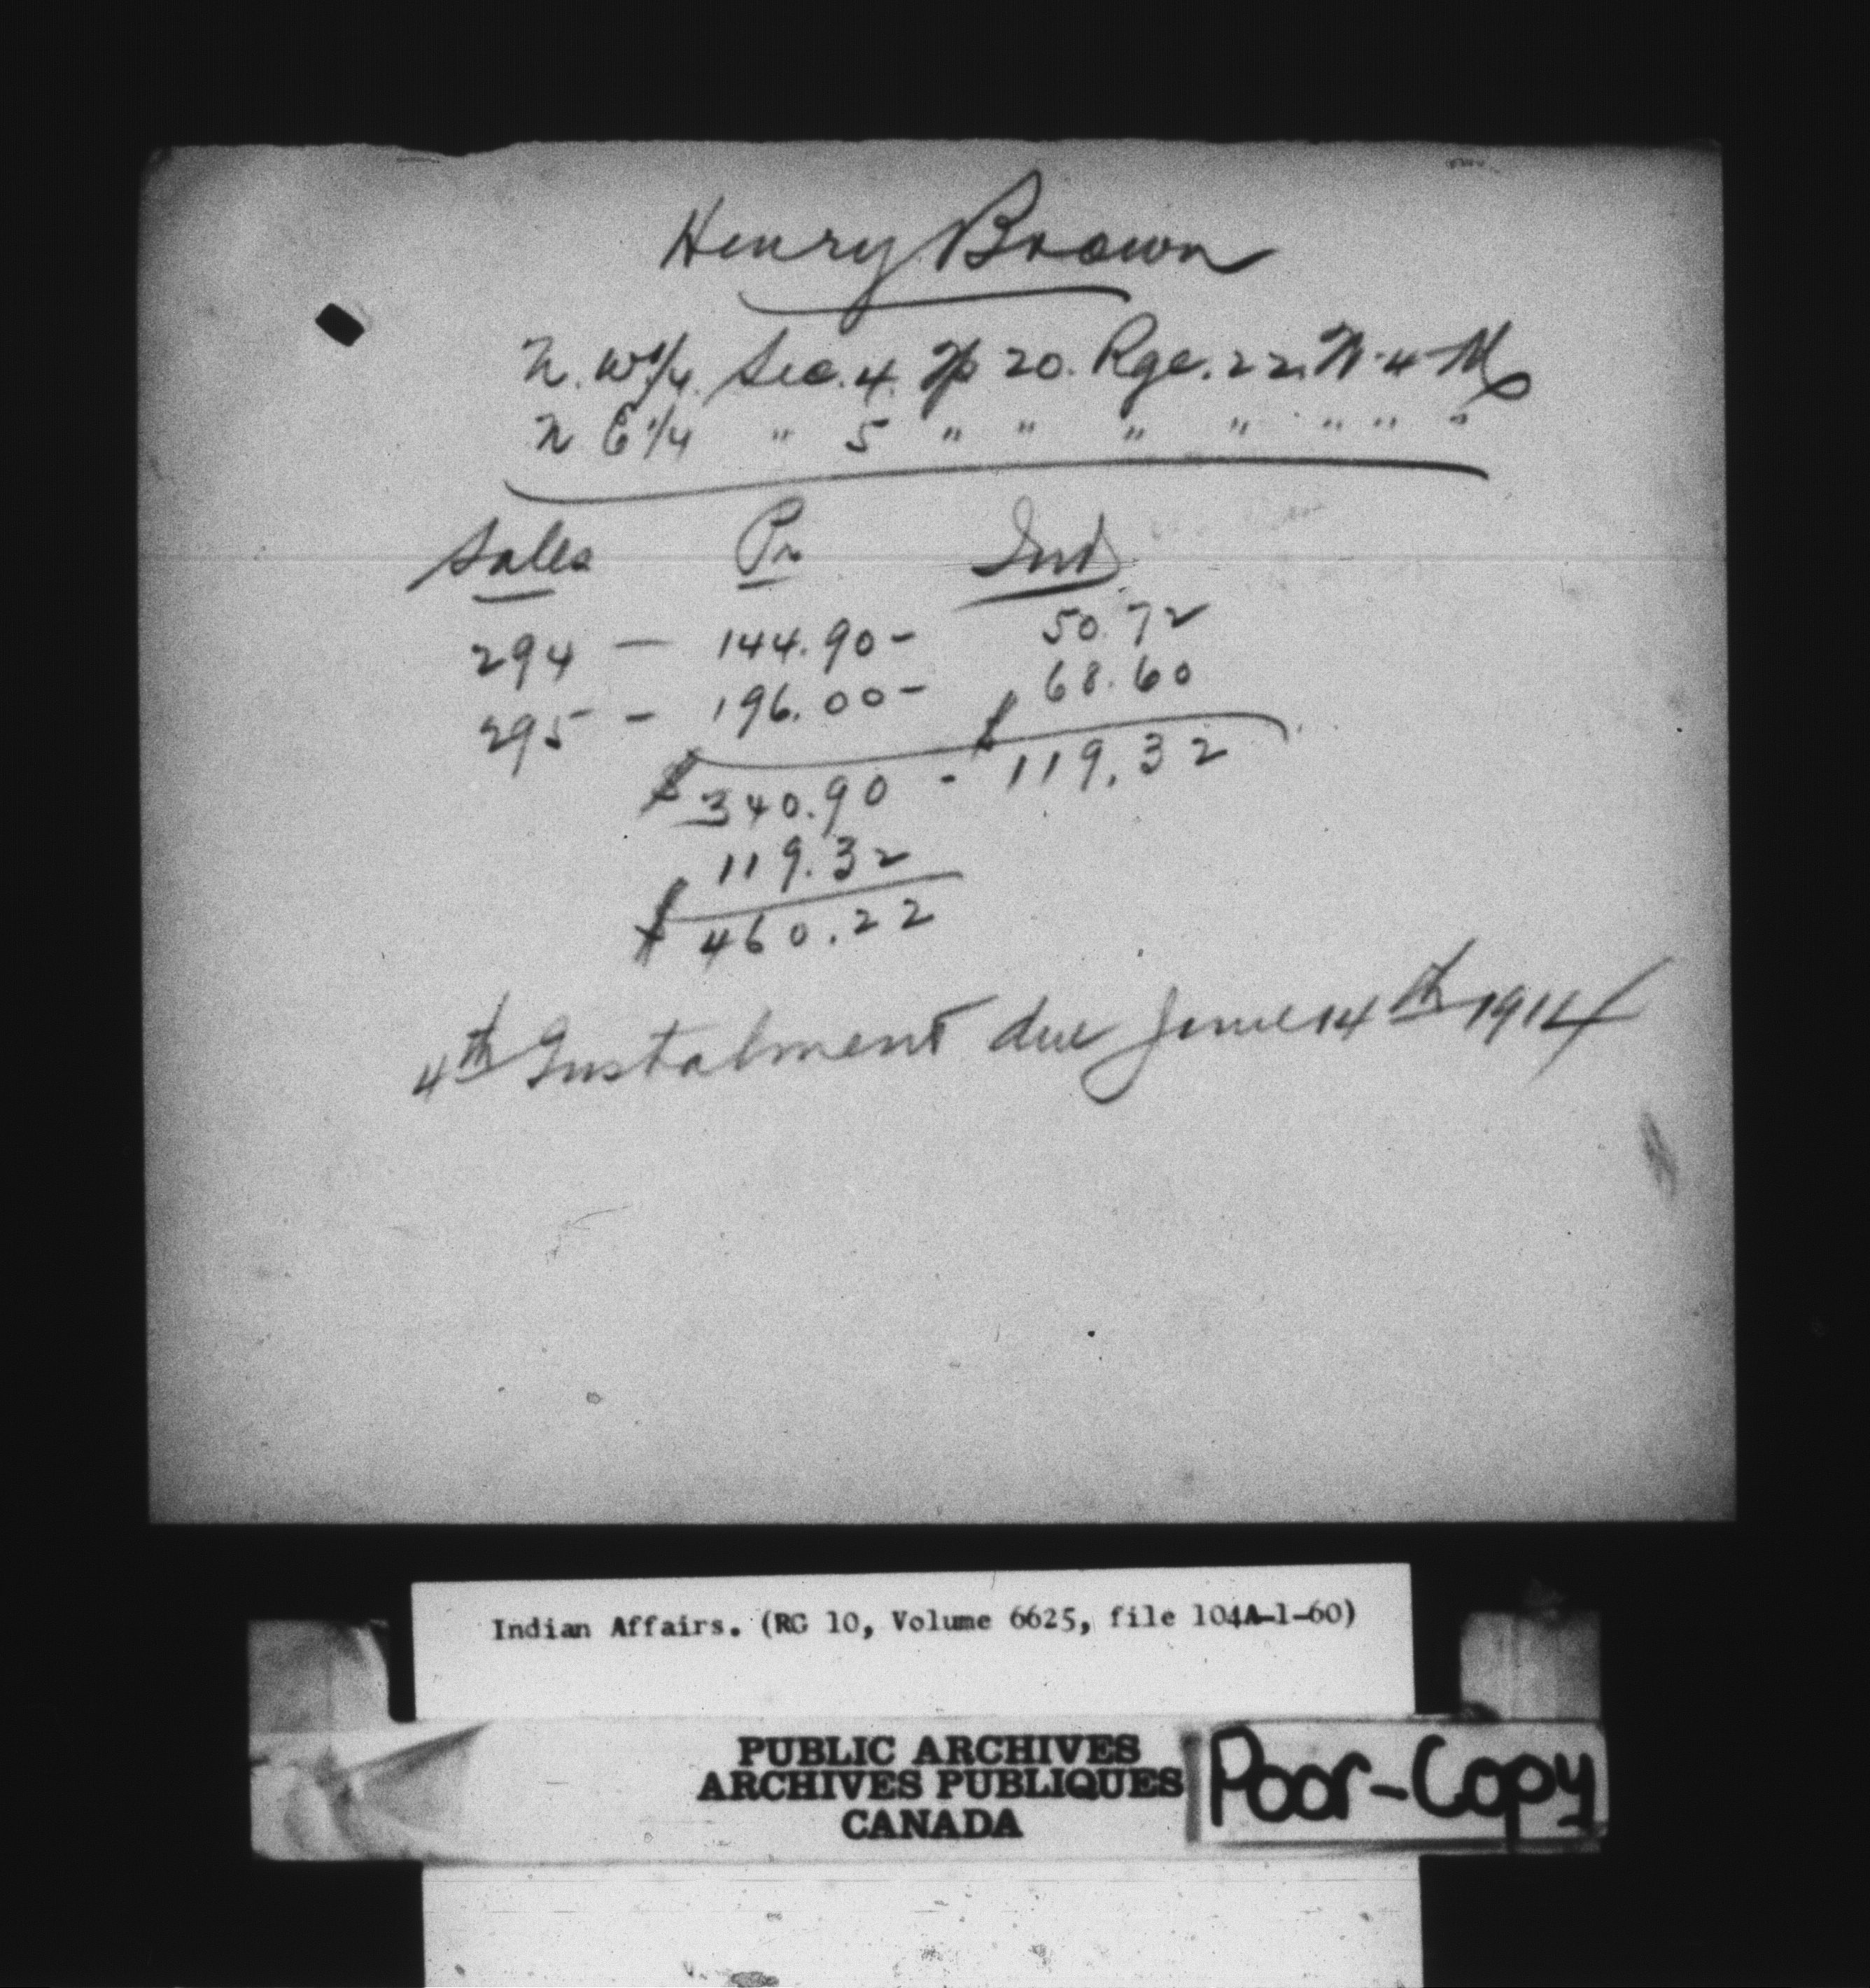 Henry Brown
N. W 1/4. Sec. 4. Tp 20. Rge. 22. W. 4 M
N E 1/4 " 5 " " " " " " "
Sales Pr Int
294 — 144.90 - 50.72
295 - 196.00 - 68.60
$ 340.90 - $ 119.32
119.32
$ 460.22
4th Instalment due June 14th 1914
Indian Affairs. (RG 10, Volume 6625, file 104A-1-60)
PUBLIC ARCHIVES
ARCHIVES PUBLIQUES
CANADA
Poor-Copy